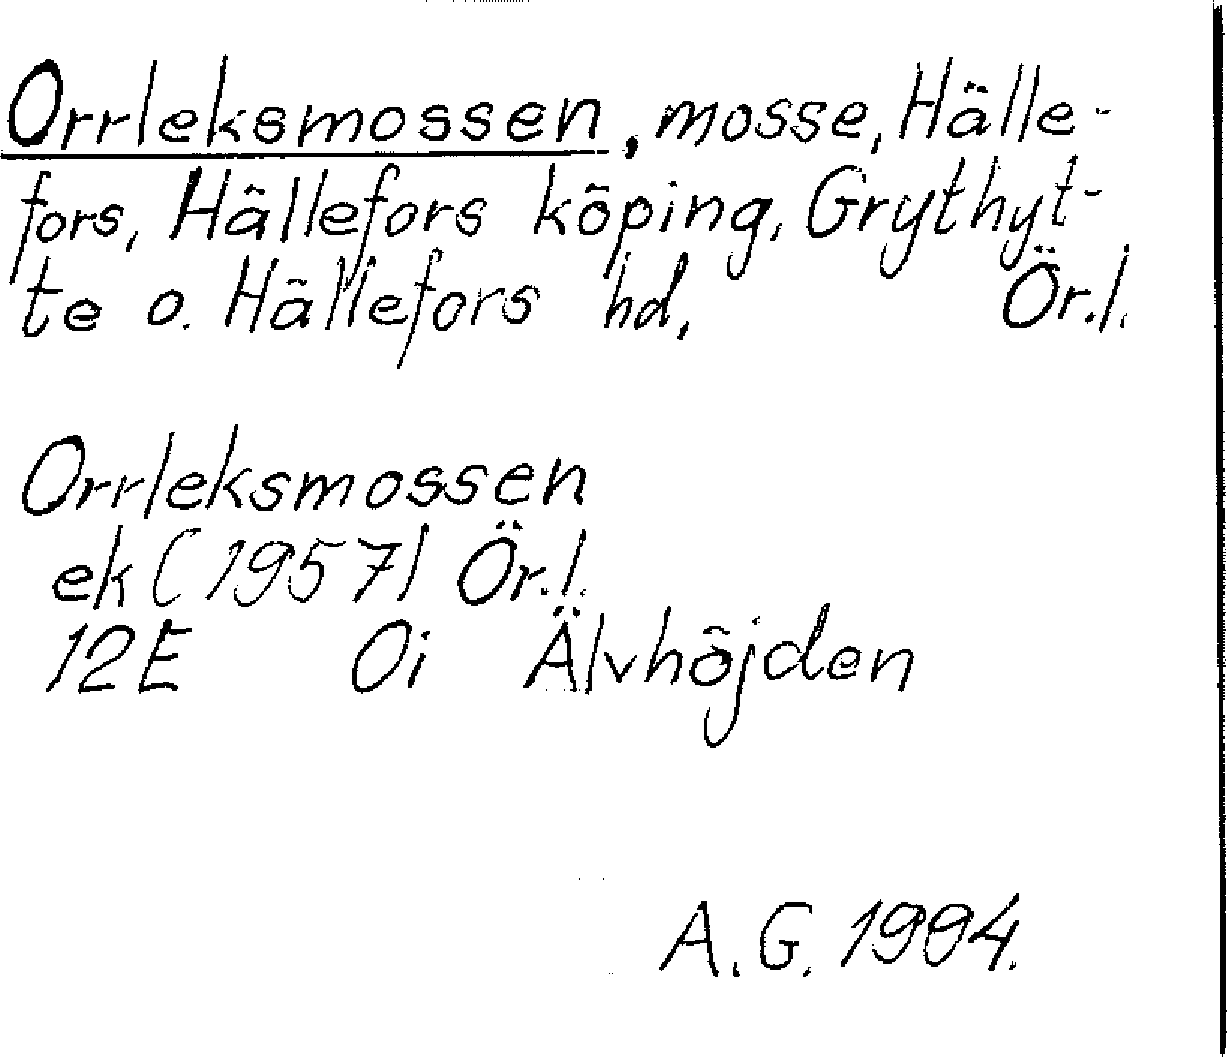 Orrleksmossen, mosse, Hälle-
fors, Hällefors köping, Grythyt-
te o. Hällefors hd, Ör.l.
Orrleksmossen
ek (1957) Ör.l.
12E 0i Älvhöjden
A.G. 1994.